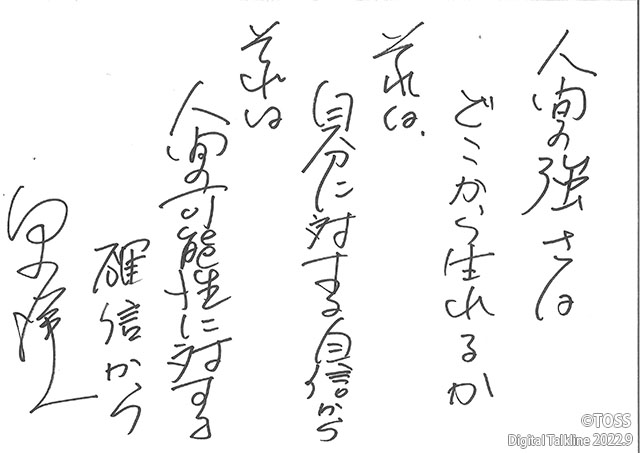 人間の強さは
どこから生れるか
それは、
自分に対する自信から
それは
人間の可能性に対する
確信から
©TOSS
Digital Talkline 2022.9